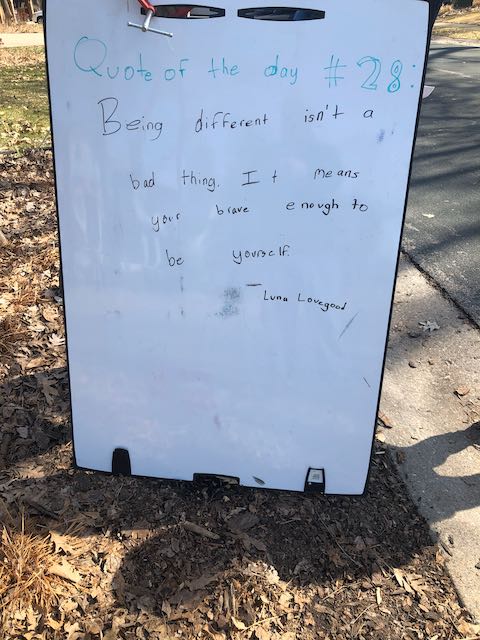 Quote of the day #28:
Being different isn't a
bad thing. It means
your brave enough to
be yourself.
- Luna Lovegood